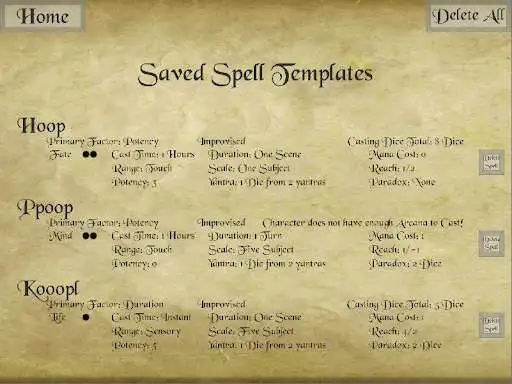 Home
Delete All
Saved Spell Templates
Hoop
Primary Factor: Potency Improvised Casting Dice Total: 8 Dice
Fate ●● Cast Time: 1 Hours Duration: One Scene Mana Cost: 0
Range: Touch Scale: One Subject Reach: 1/2
Potency: 3 Yantra: 1 Die from 2 yantras Paradox: None
Delete Spell
Ppoop
Primary Factor: Potency Improvised Character does not have enough Arcana to Cast!
Mind ●● Cast Time: 1 Hours Duration: 1 Turn Mana Cost: 1
Range: Touch Scale: Five Subject Reach: 1/-1
Potency: 0 Yantra: 1 Die from 2 yantras Paradox: 2 Dice
Delete Spell
Kooopl
Primary Factor: Duration Improvised Casting Dice Total: 5 Dice
Life ● Cast Time: Instant Duration: One Scene Mana Cost: 1
Range: Sensory Scale: Five Subject Reach:
Potency: 5 Yantra: 1 Die from 2 yantras Paradox: 2 Dice
Delete Spell